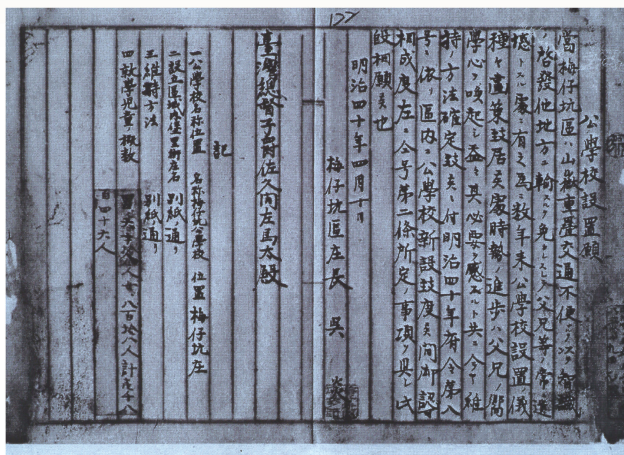 177
公學校設置願
當梅仔坑區ハ山嶽重疊交通不便ニシテ智識
ノ啓發他地方ニ輸スルヲ免レス父兄等常ニ遺
憾トスル處ニ有之爲數年來公學校設置ノ儀
種々畫策致居候處時勢ノ進歩ハ父兄ノ嚮
學心ヲ喚起シ益々其必要ヲ感スルト共ニ今ヤ維
持方法確定致候ニ付明治四十年府令第八
號ニ依リ區内ニ公學校新設致度候間御認可
相成度左ニ令号第二條所定ノ事項ヲ具シ此
段相願候也
明治四十年四月十日
梅仔坑區庄長 吳
臺灣總督子爵佐久間左馬太殿
記
一公學校名称位置 名称梅仔坑公學校 位置梅仔坑庄
二設立區域 別紙ノ通リ
三維持方法 別紙ノ通リ
四就學児童ノ概數
八百拾八人 計壱千八
百四十六人